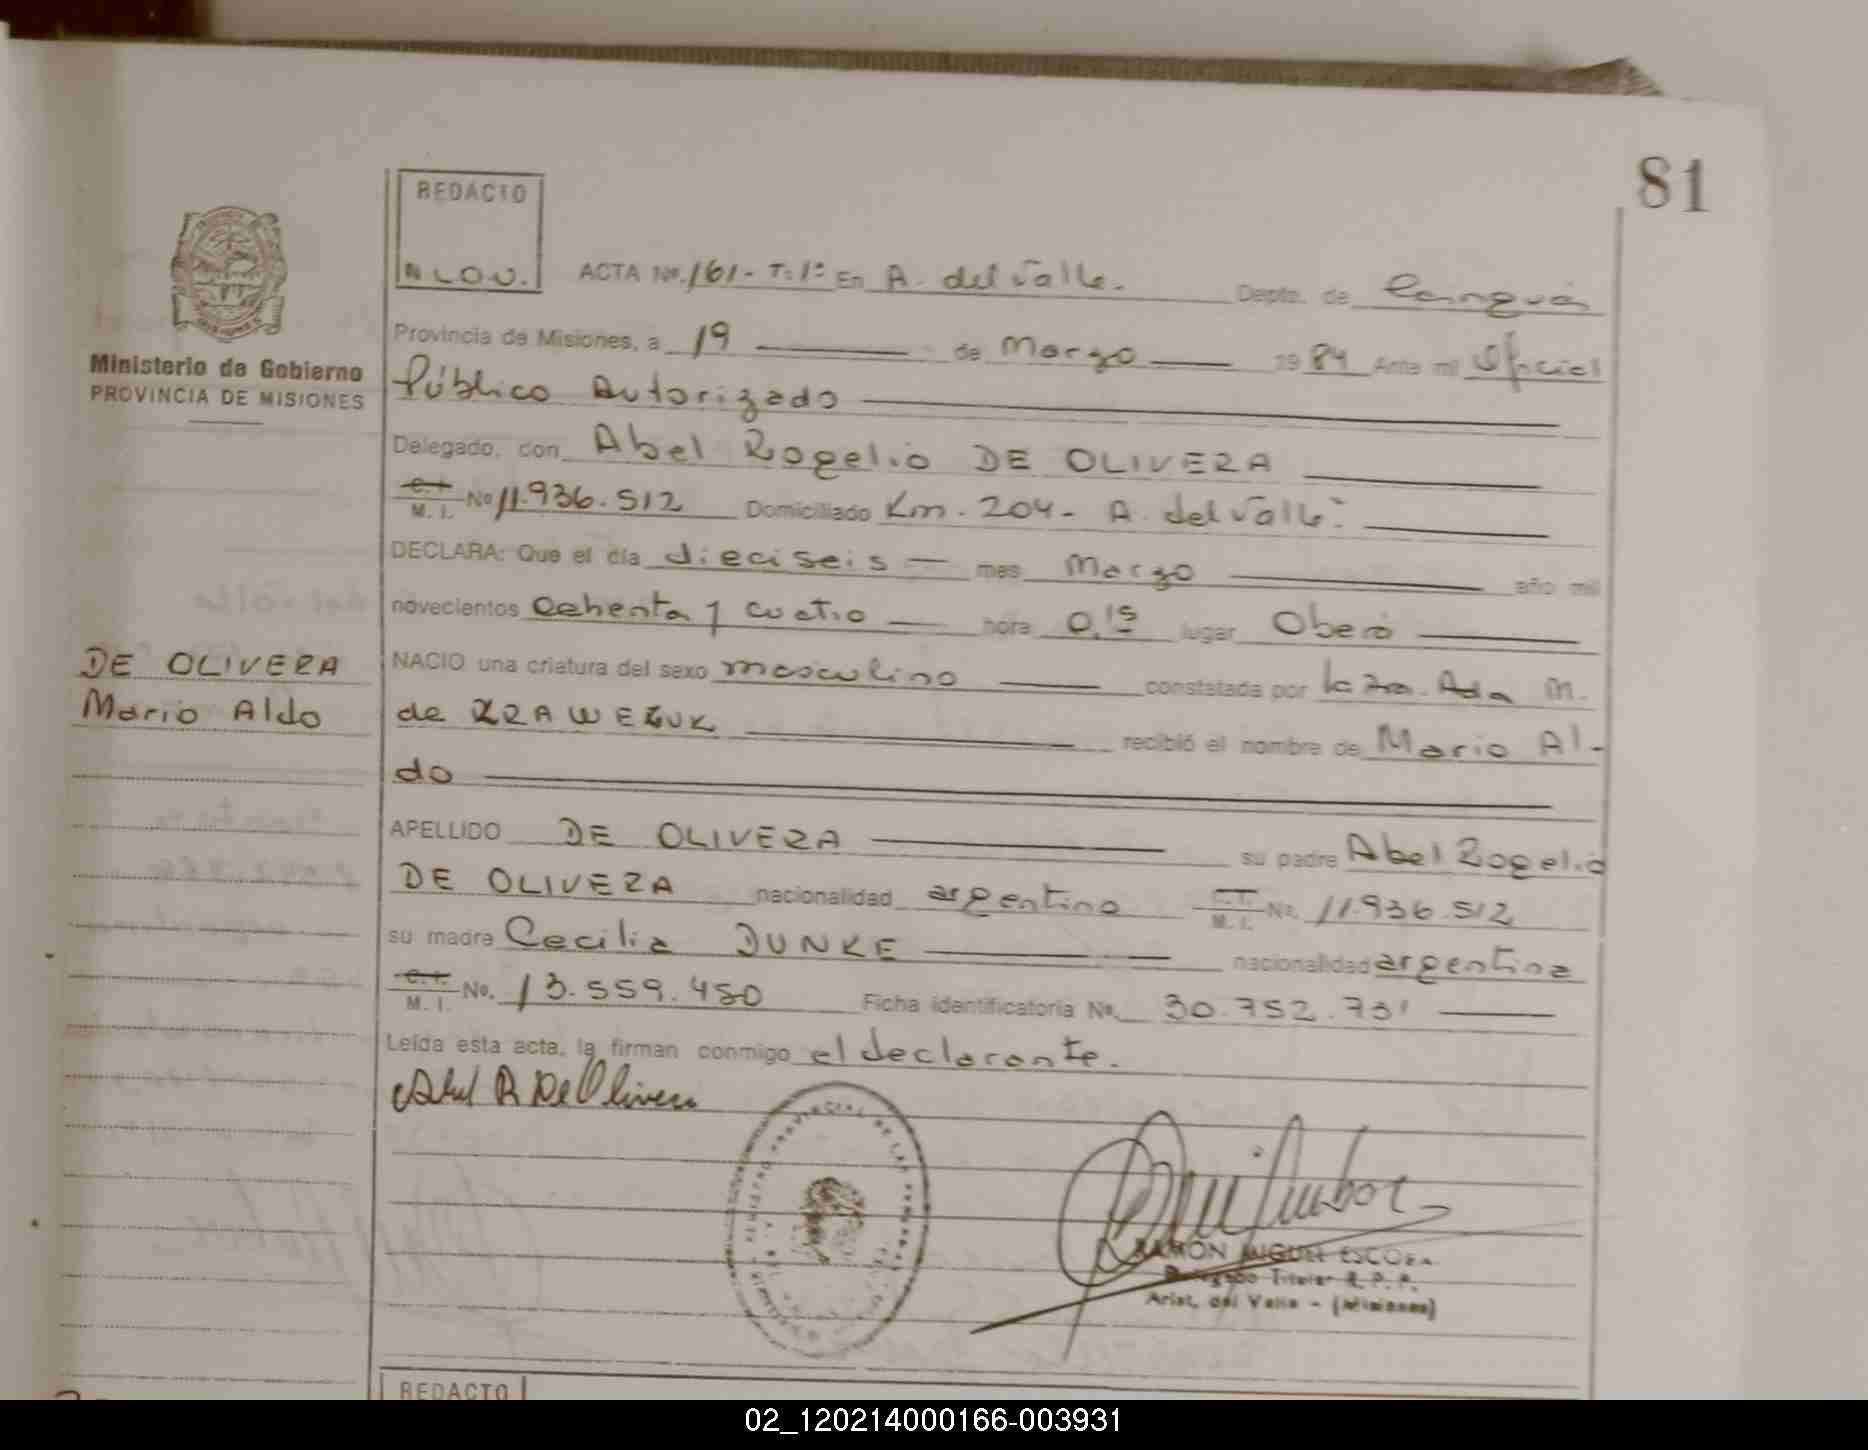 81
REDACTO
N L O U.
ACTA No. 161 - T: 1º En A. del Valle. Depto. de Cainguás
Ministerio de Gobierno
PROVINCIA DE MISIONES
Provincia de Misiones, a 19 de Marzo 1984 Ante mi Oficial
Público Autorizado
Delegado, con Abel Rogelio DE OLIVERA
C.I. M. I. No 11.936.512 Domiciliado Km. 204 - A. del Valle.
DECLARA: Que el día dieciseis mes Marzo año mil
novecientos Ochenta y cuatro hora 0,15 lugar Oberá
NACIO una criatura del sexo masculino constatada por la Ada M.
de KRAWEZUK recibió el nombre de Mario Al-
do
DE OLIVERA
Mario Aldo
APELLIDO DE OLIVERA su padre Abel Rogelio
DE OLIVERA nacionalidad argentino C.I. M. I. No. 11.936.512
su madre Cecilia DUNKE nacionalidad argentina
C.I. M. I. No. 13.559.450 Ficha identificatoria No. 30.752.731
Leída esta acta, la firman conmigo el declarante.
Abel R De Olivera
RAMÓN MIGUEL ESCOBAR
Delegado Titular R. P. P.
Arist. del Valle - (Misiones)
REDACTO
02_120214000166-003931